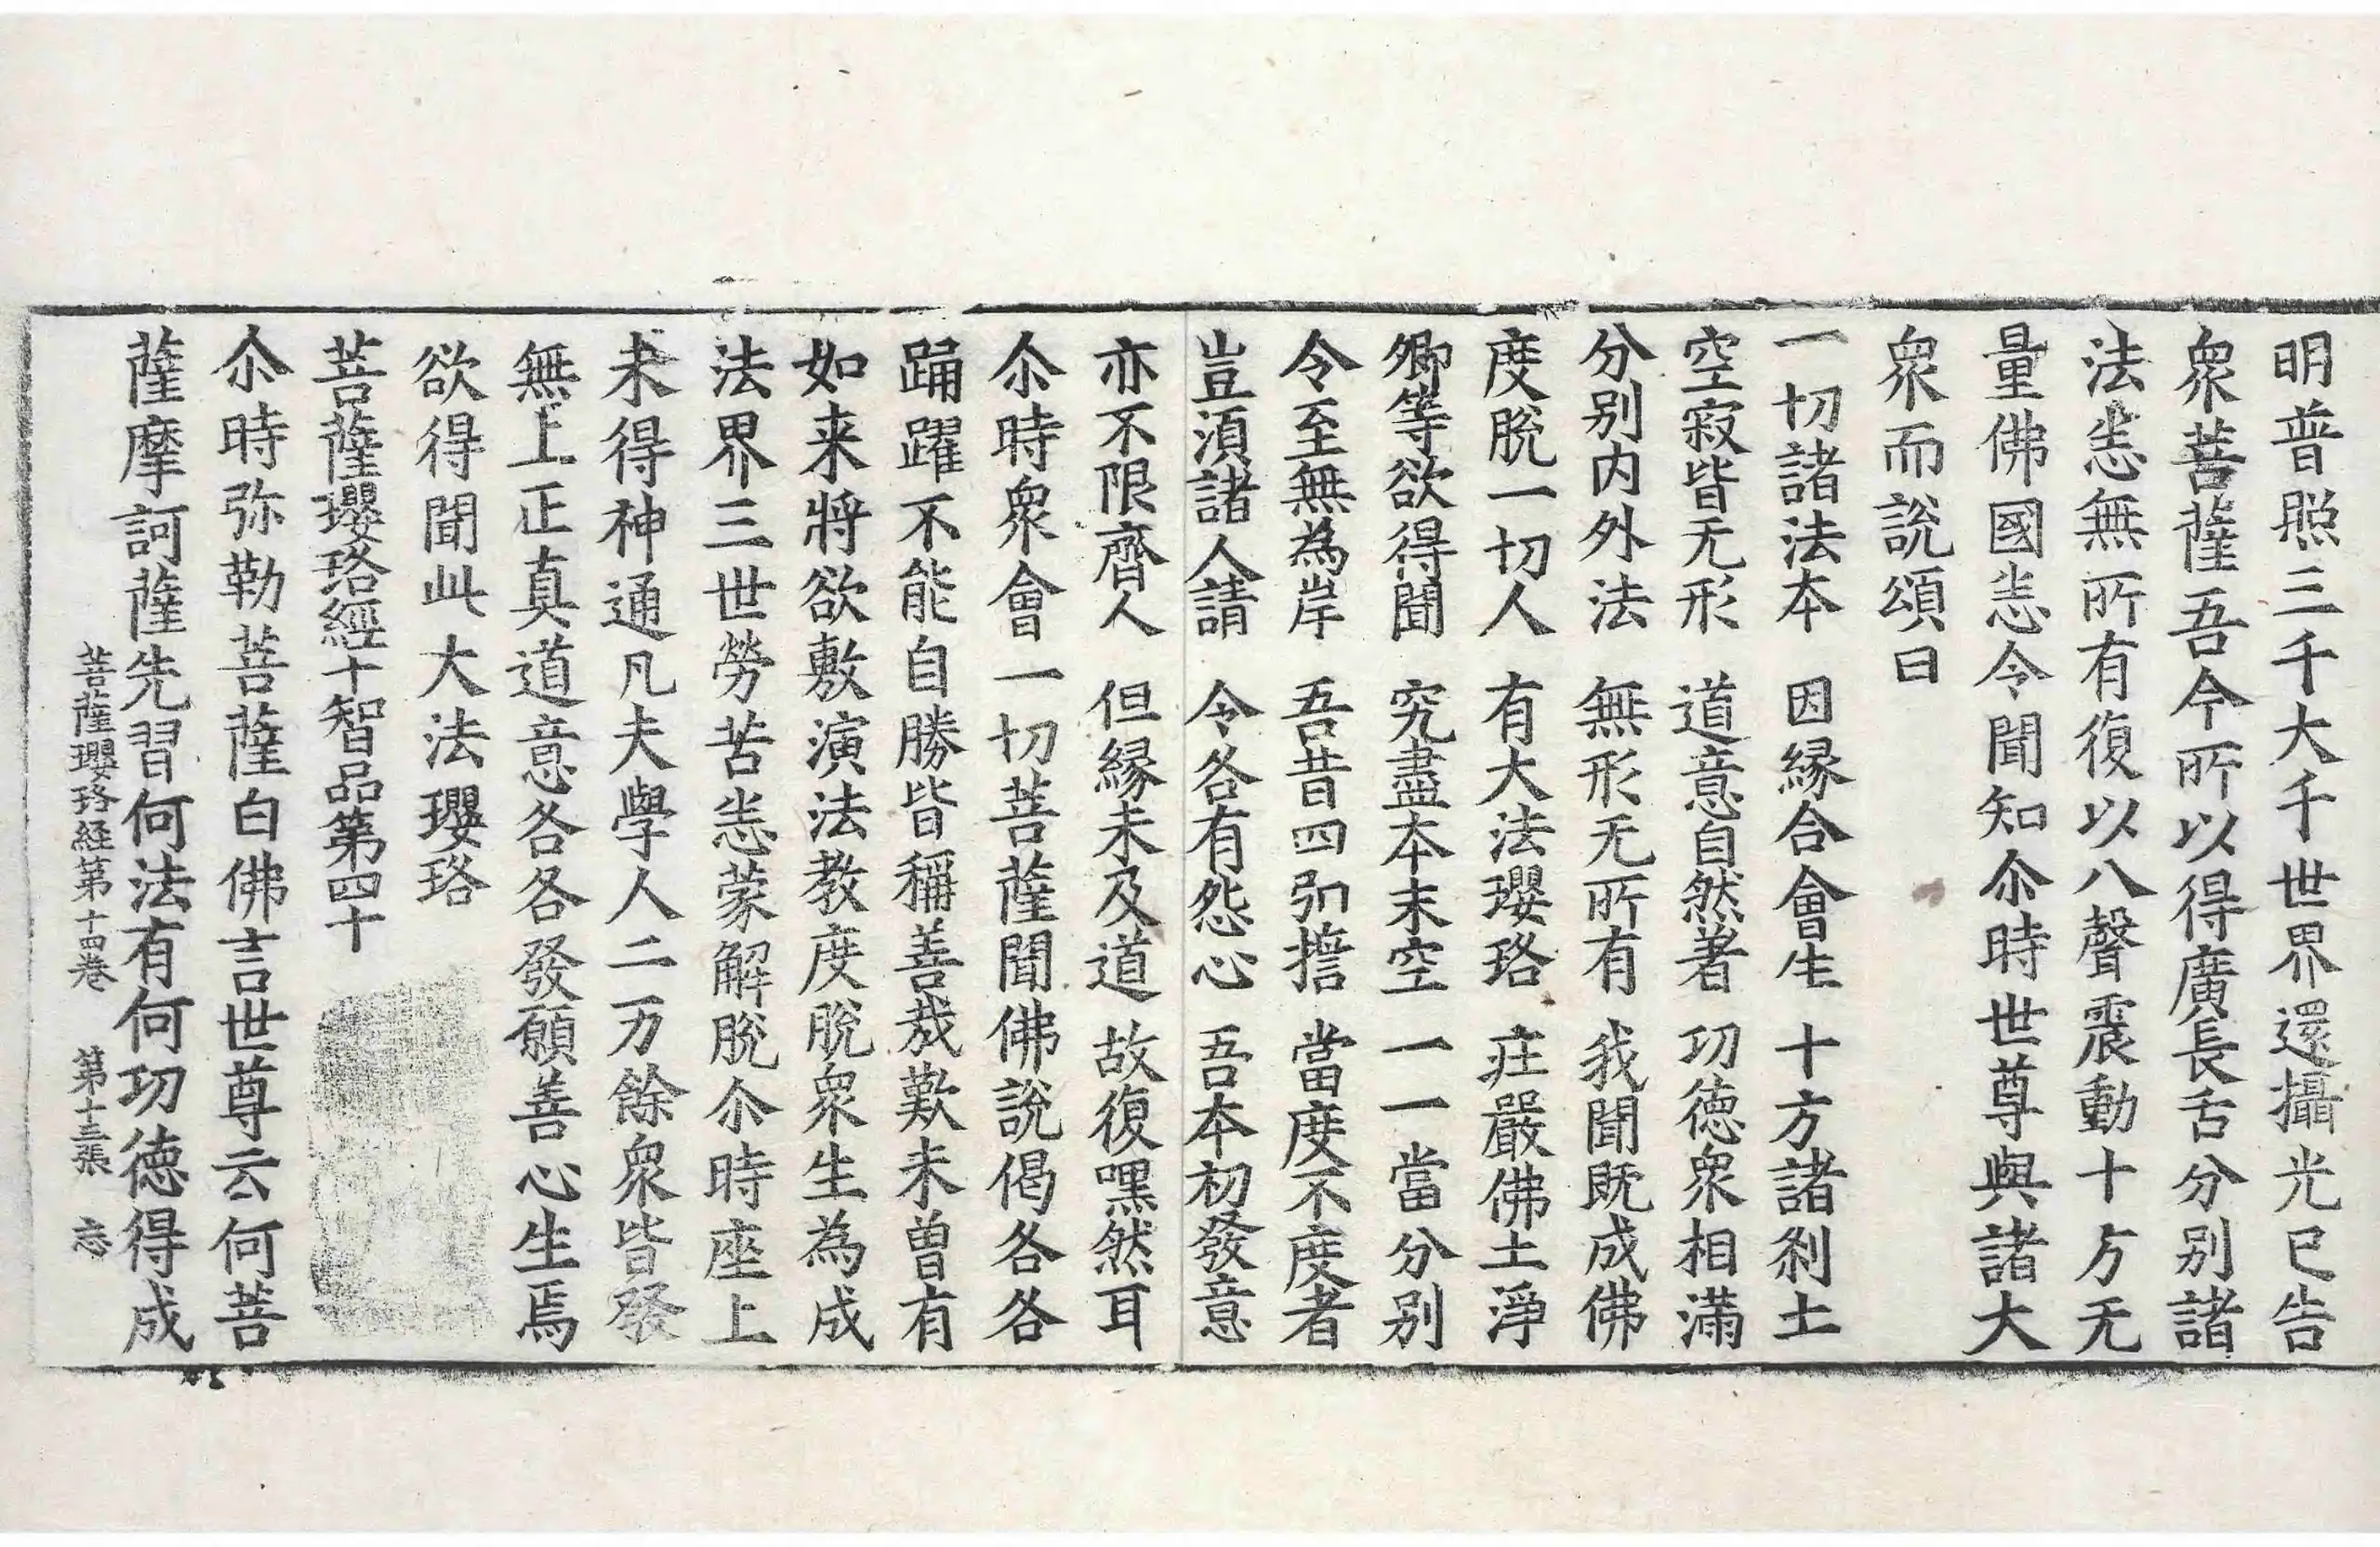 明普照三千大千世界還攝光已告
衆菩薩吾今所以得廣長舌分別諸
法悉無所有復以八聲震動十方无
量佛國悉令聞知尒時世尊與諸大
衆而說頌曰
一切諸法本 因縁合會生 十方諸刹土
空寂皆无形 道意自然著 功徳衆相滿
分別内外法 無形无所有 我聞既成佛
度脫一切人 有大法瓔珞 莊嚴佛土淨
卿等欲得聞 究盡本末空 一一當分別
令至無為岸 吾昔四弘誓 當度不度者
豈湏諸人請 令各有怨心 吾本初發意
亦不限齊人 但縁未及道 故復嘿然耳
尒時衆會一切菩薩聞佛說偈各各
踊躍不能自勝皆稱善㢤歎未曽有
如来將欲敷演法教度脫衆生為成
法界三世勞苦悉蒙解脫尒時座上
未得神通凡夫學人二万餘衆皆發
無上正真道意各各發願善心生焉
欲得聞此大法瓔珞
菩薩瓔珞經十智品第四十
尒時弥勒菩薩白佛言世尊云何菩
薩摩訶薩先習何法有何功徳得成
菩薩瓔珞経第十四巻 第十三張 忘